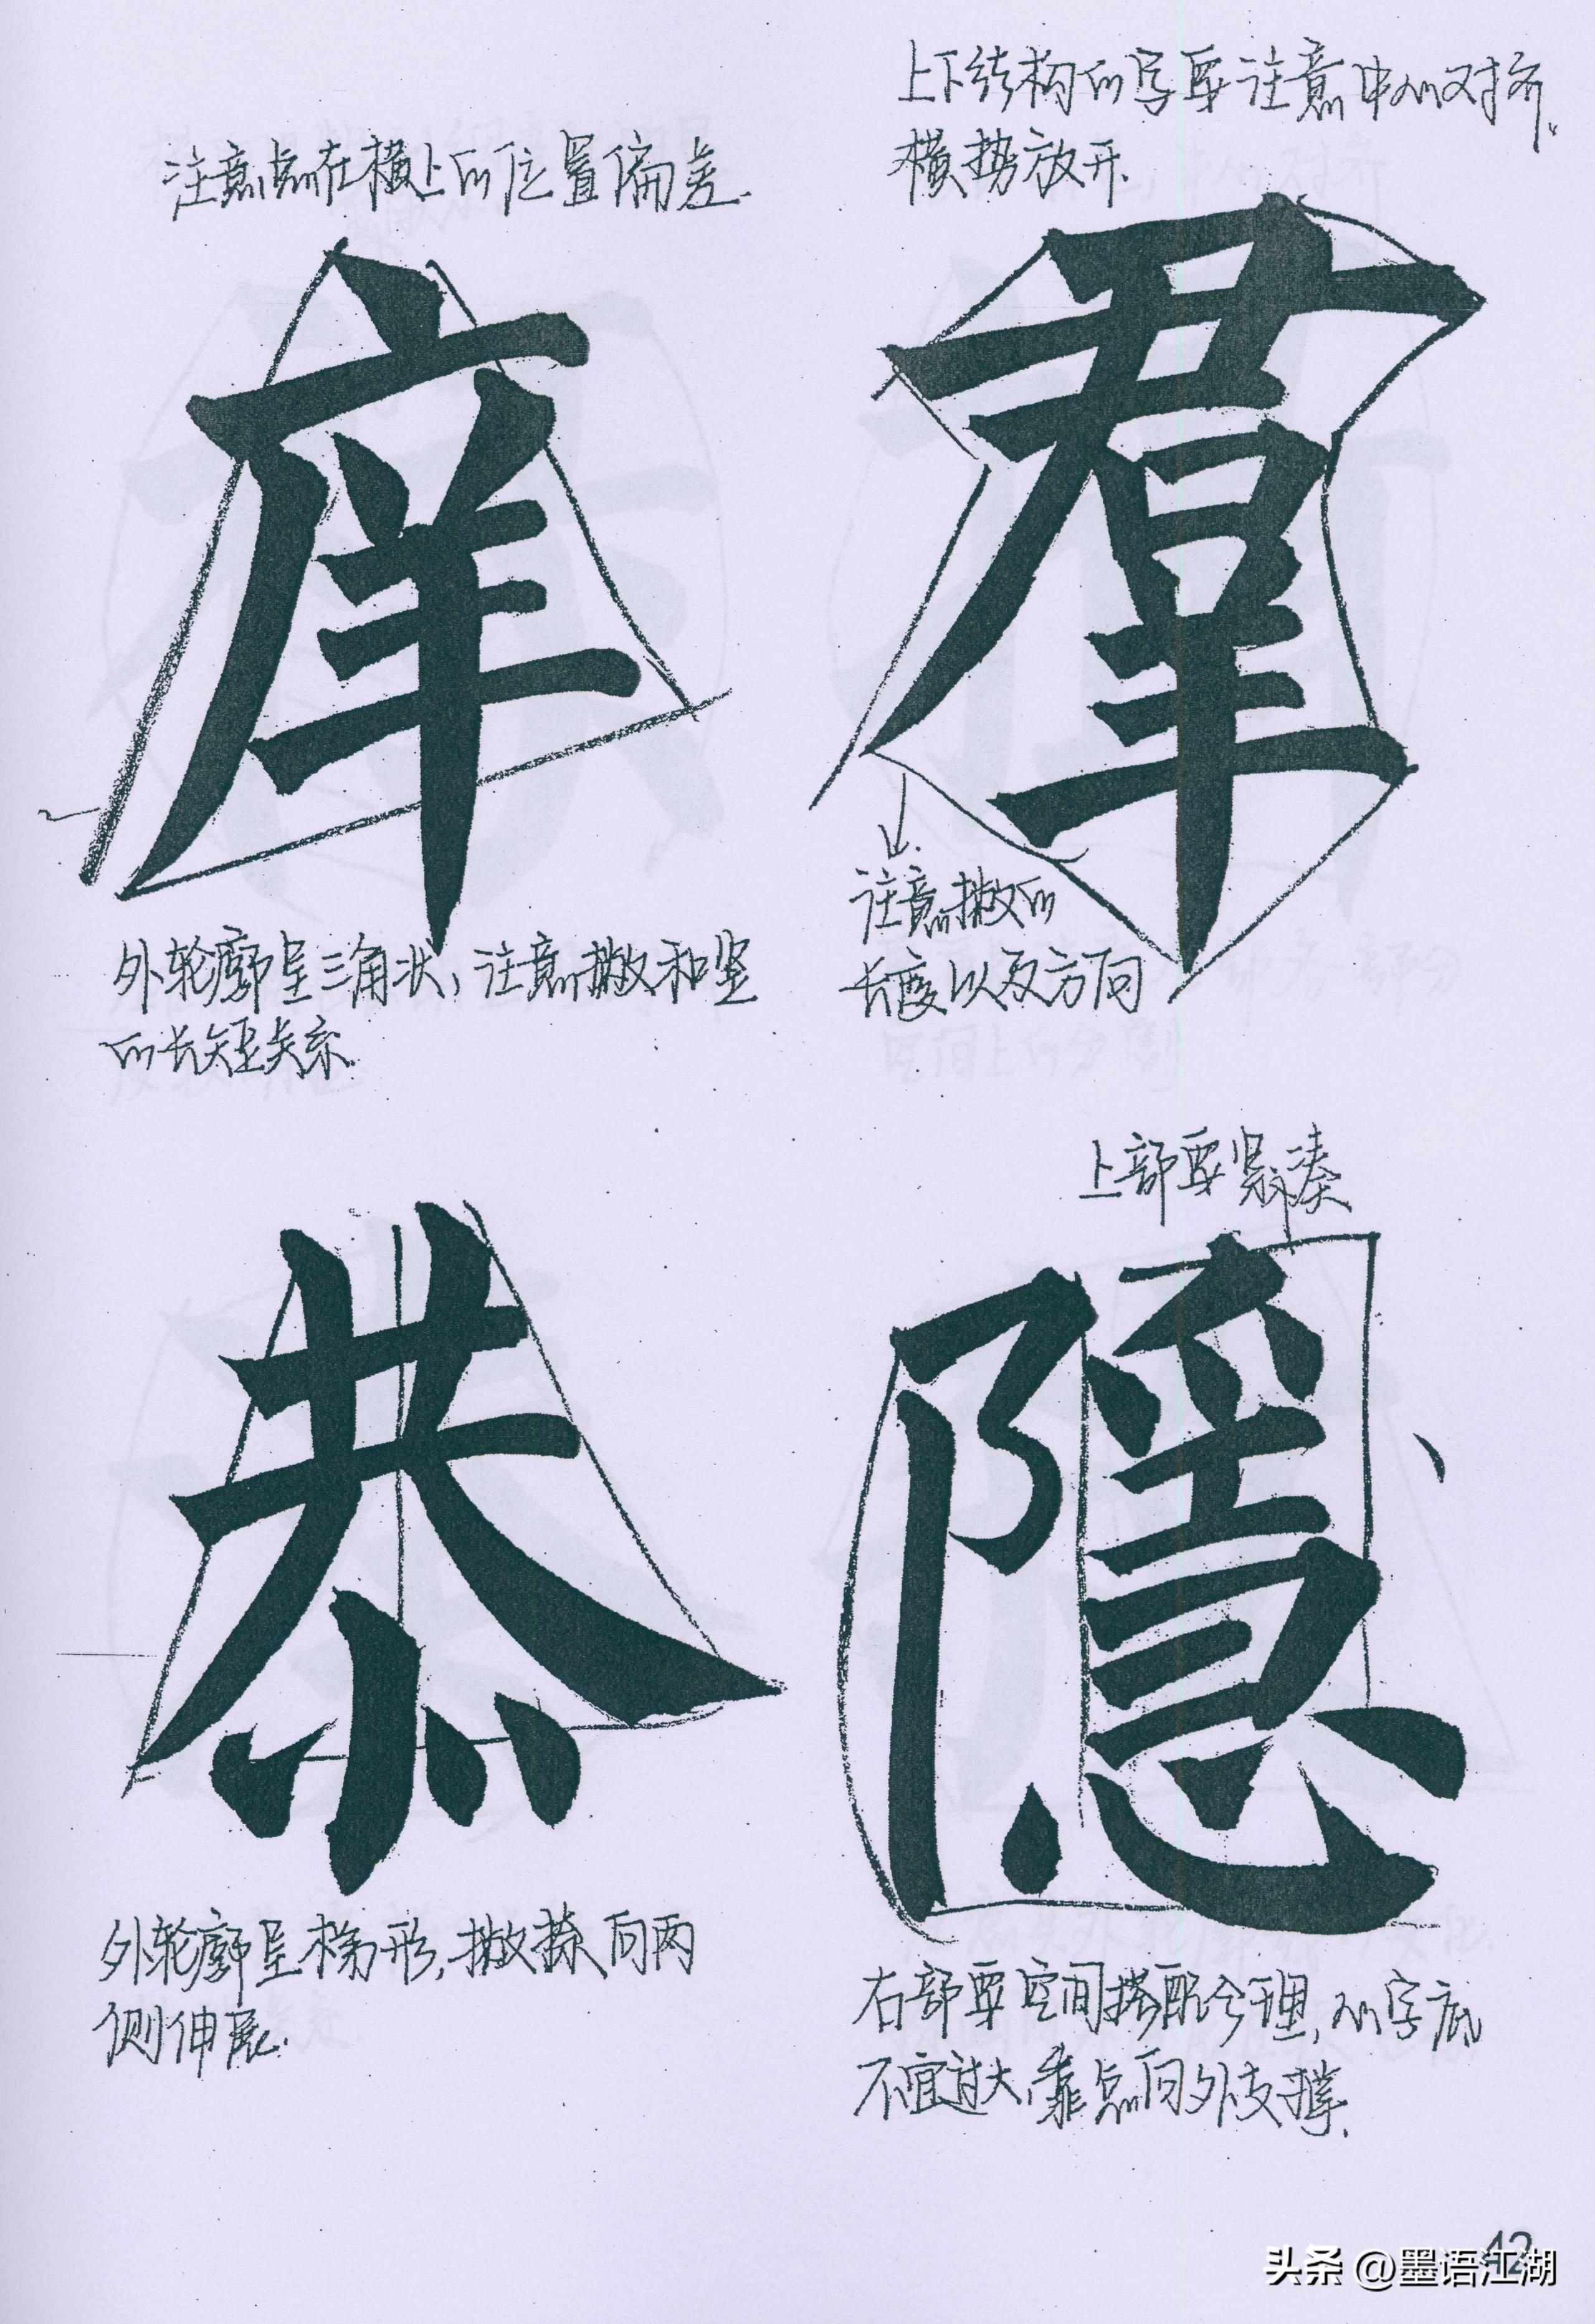 注意点在横上的位置偏差.
庠
外轮廓呈三角状,注意撇和竖
的长短关系.
上下结构的字要注意中心对齐.
横势放开.
羣
注意撇的
长度以及方向
恭
外轮廓呈梯形,撇捺向两
侧伸展.
上部要紧凑
隱
右部要空间搭配合理,心字底
不宜过大,靠点向外支撑.
42
头条 @墨语江湖